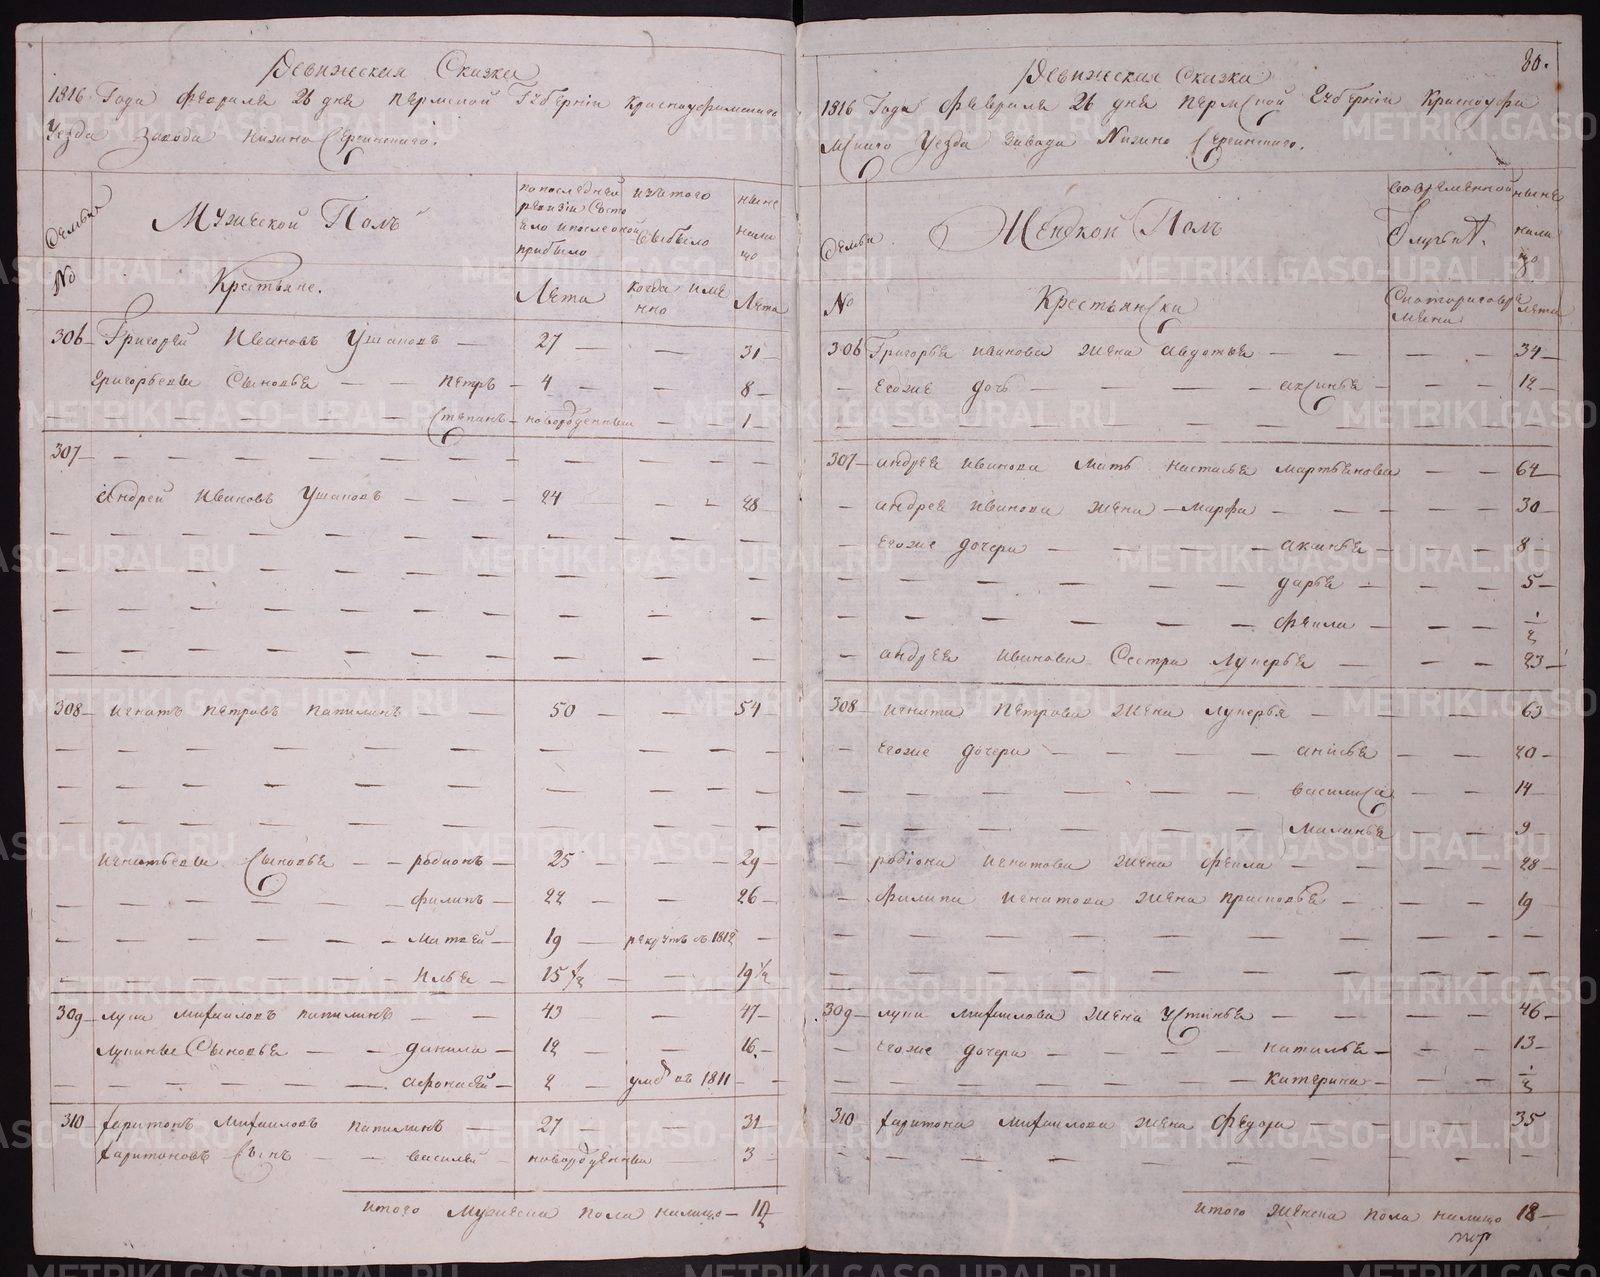 Ревижская Сказка
1816 Года Февраля 26 дня Пермской Губернiи Красноуфимского
Уезда Завода Нижно Сергинского.
Семьи
Мужеской Полъ
по последней ревизiи состояло и после оной прибыло
изъ того выбыло
ныне на лицо
No
Крестьяне.
Лета
когда именно
Лета
306 Григорей Ивановъ Ушаковъ 27 31
Григорьевы Сыновья Петръ 4 8
Степанъ новорожденный 1
307
Андрей Ивановъ Ушаковъ 24 28
308 Игнатъ Петровъ Патилинъ 50 54
Игнатьевы Сыновья родионъ 25 29
филипъ 22 26
Матвей 19 рекрутъ въ 1812
Илья 15 1/2 19 1/2
309 лука Михаиловъ патилинъ 43 47
лукины Сыновья данила 12 16
афонасей 2 умр въ 1811
310 харитонъ Михаиловъ патилинъ 27 31
харитоновъ Сынъ василей новорожденный 3
итого мужеска пола налицо 12
80.
Ревижская Сказка
1816 Года Февраля 26 дня Пермской Губернiи Красноуфи
мского Уезда Завода Нижно Сергинского.
Семьи
Женской Полъ
во временной отлучке
ныне на лицо
No
Крестьянски
Лета
306 Григорья иванова жена авдотья 34
Егоже дочь аксинья 12
307 андрея иванова мать настасья мартьянова 64
андрея иванова жена Марфа 30
Егоже дочери акинья 8
дарья 5
фекла 1/2
андрея иванова Сестра лукерья 23
308 игната Петрова жена лукерья 63
Егоже дочери анисья 20
василиса 14
маланья 9
родiона игнатова жена фекла 28
филипа игнатова жена прасковья 19
309 луки михаилова жена устинья 46
Егоже дочери наталья 13
катерина 1/2
310 харитона михаилова жена федора 35
итого женска пола налицо 18
METRIKI.GASO-URAL.RU